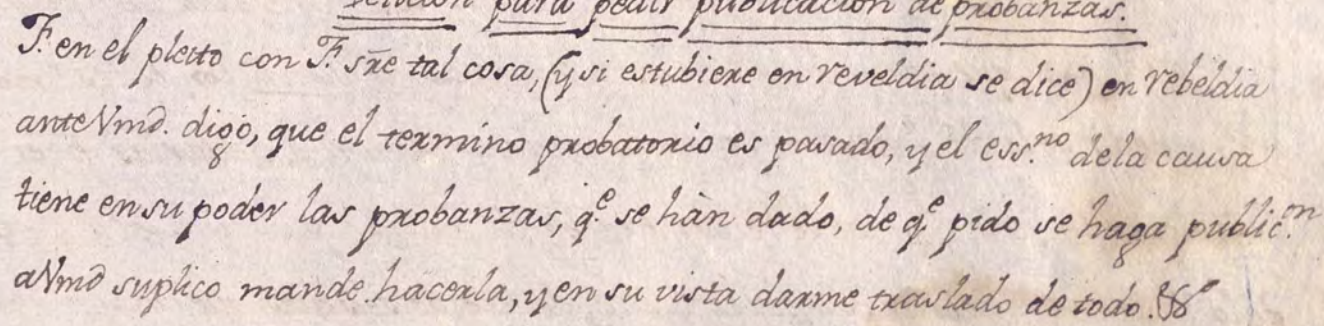 Peticion para pedir publicacion de probanzas.
F. en el pleito con F. sr̃e tal cosa, (y si estubiere en reveldia se dice) en rebeldia
ante Vmd. digo, que el termino probatorio es pasado, y el ess.no dela causa
tiene en su poder las probanzas, q.e se hàn dado, de q.e pido se haga public.on
a Vmd suplico mande hacerla, y en su vista darme traslado de todo. &